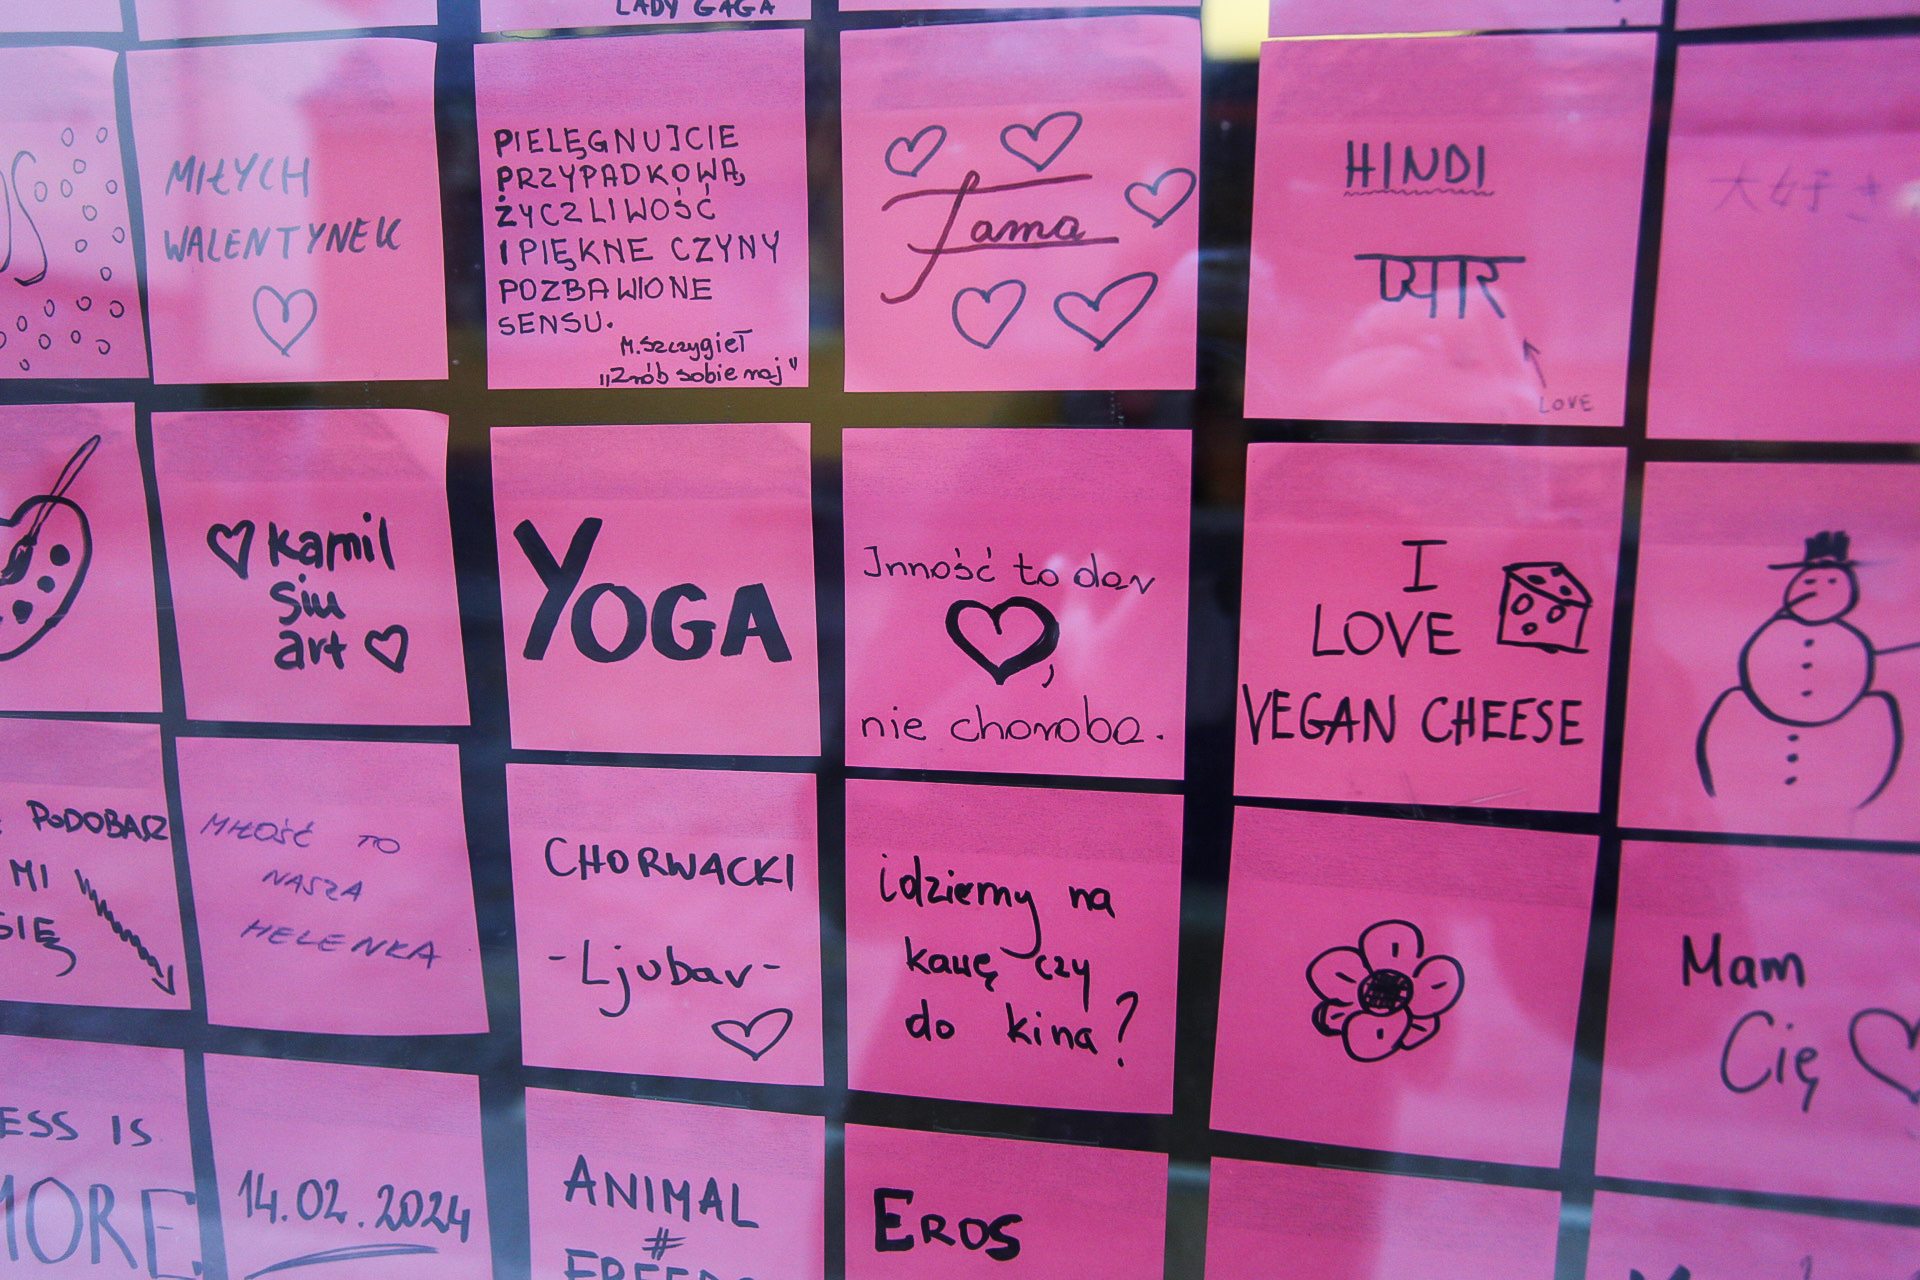 LADY GAGA
MIŁYCH
WALENTYNEK
PIELĘGNUJCIE
PRZYPADKOWĄ
ŻYCZLIWOŚĆ
I PIĘKNE CZYNY
POZBAWIONE
SENSU.
M. Szczygieł
„Zrób sobie raj"
Tama
HINDI
प्यार
LOVE
大好き
Kamil
Siu
art
YOGA
Inność to dar
,
nie choroba.
I
LOVE
VEGAN CHEESE
PODOBASZ
MI
SIĘ
MIŁOŚĆ TO
NASZA
HELENKA
CHORWACKI
- Ljubav -
idziemy na
kawę czy
do kina?
Mam
Cię
ESS IS
MORE
14.02.2024
ANIMAL
#
EROS